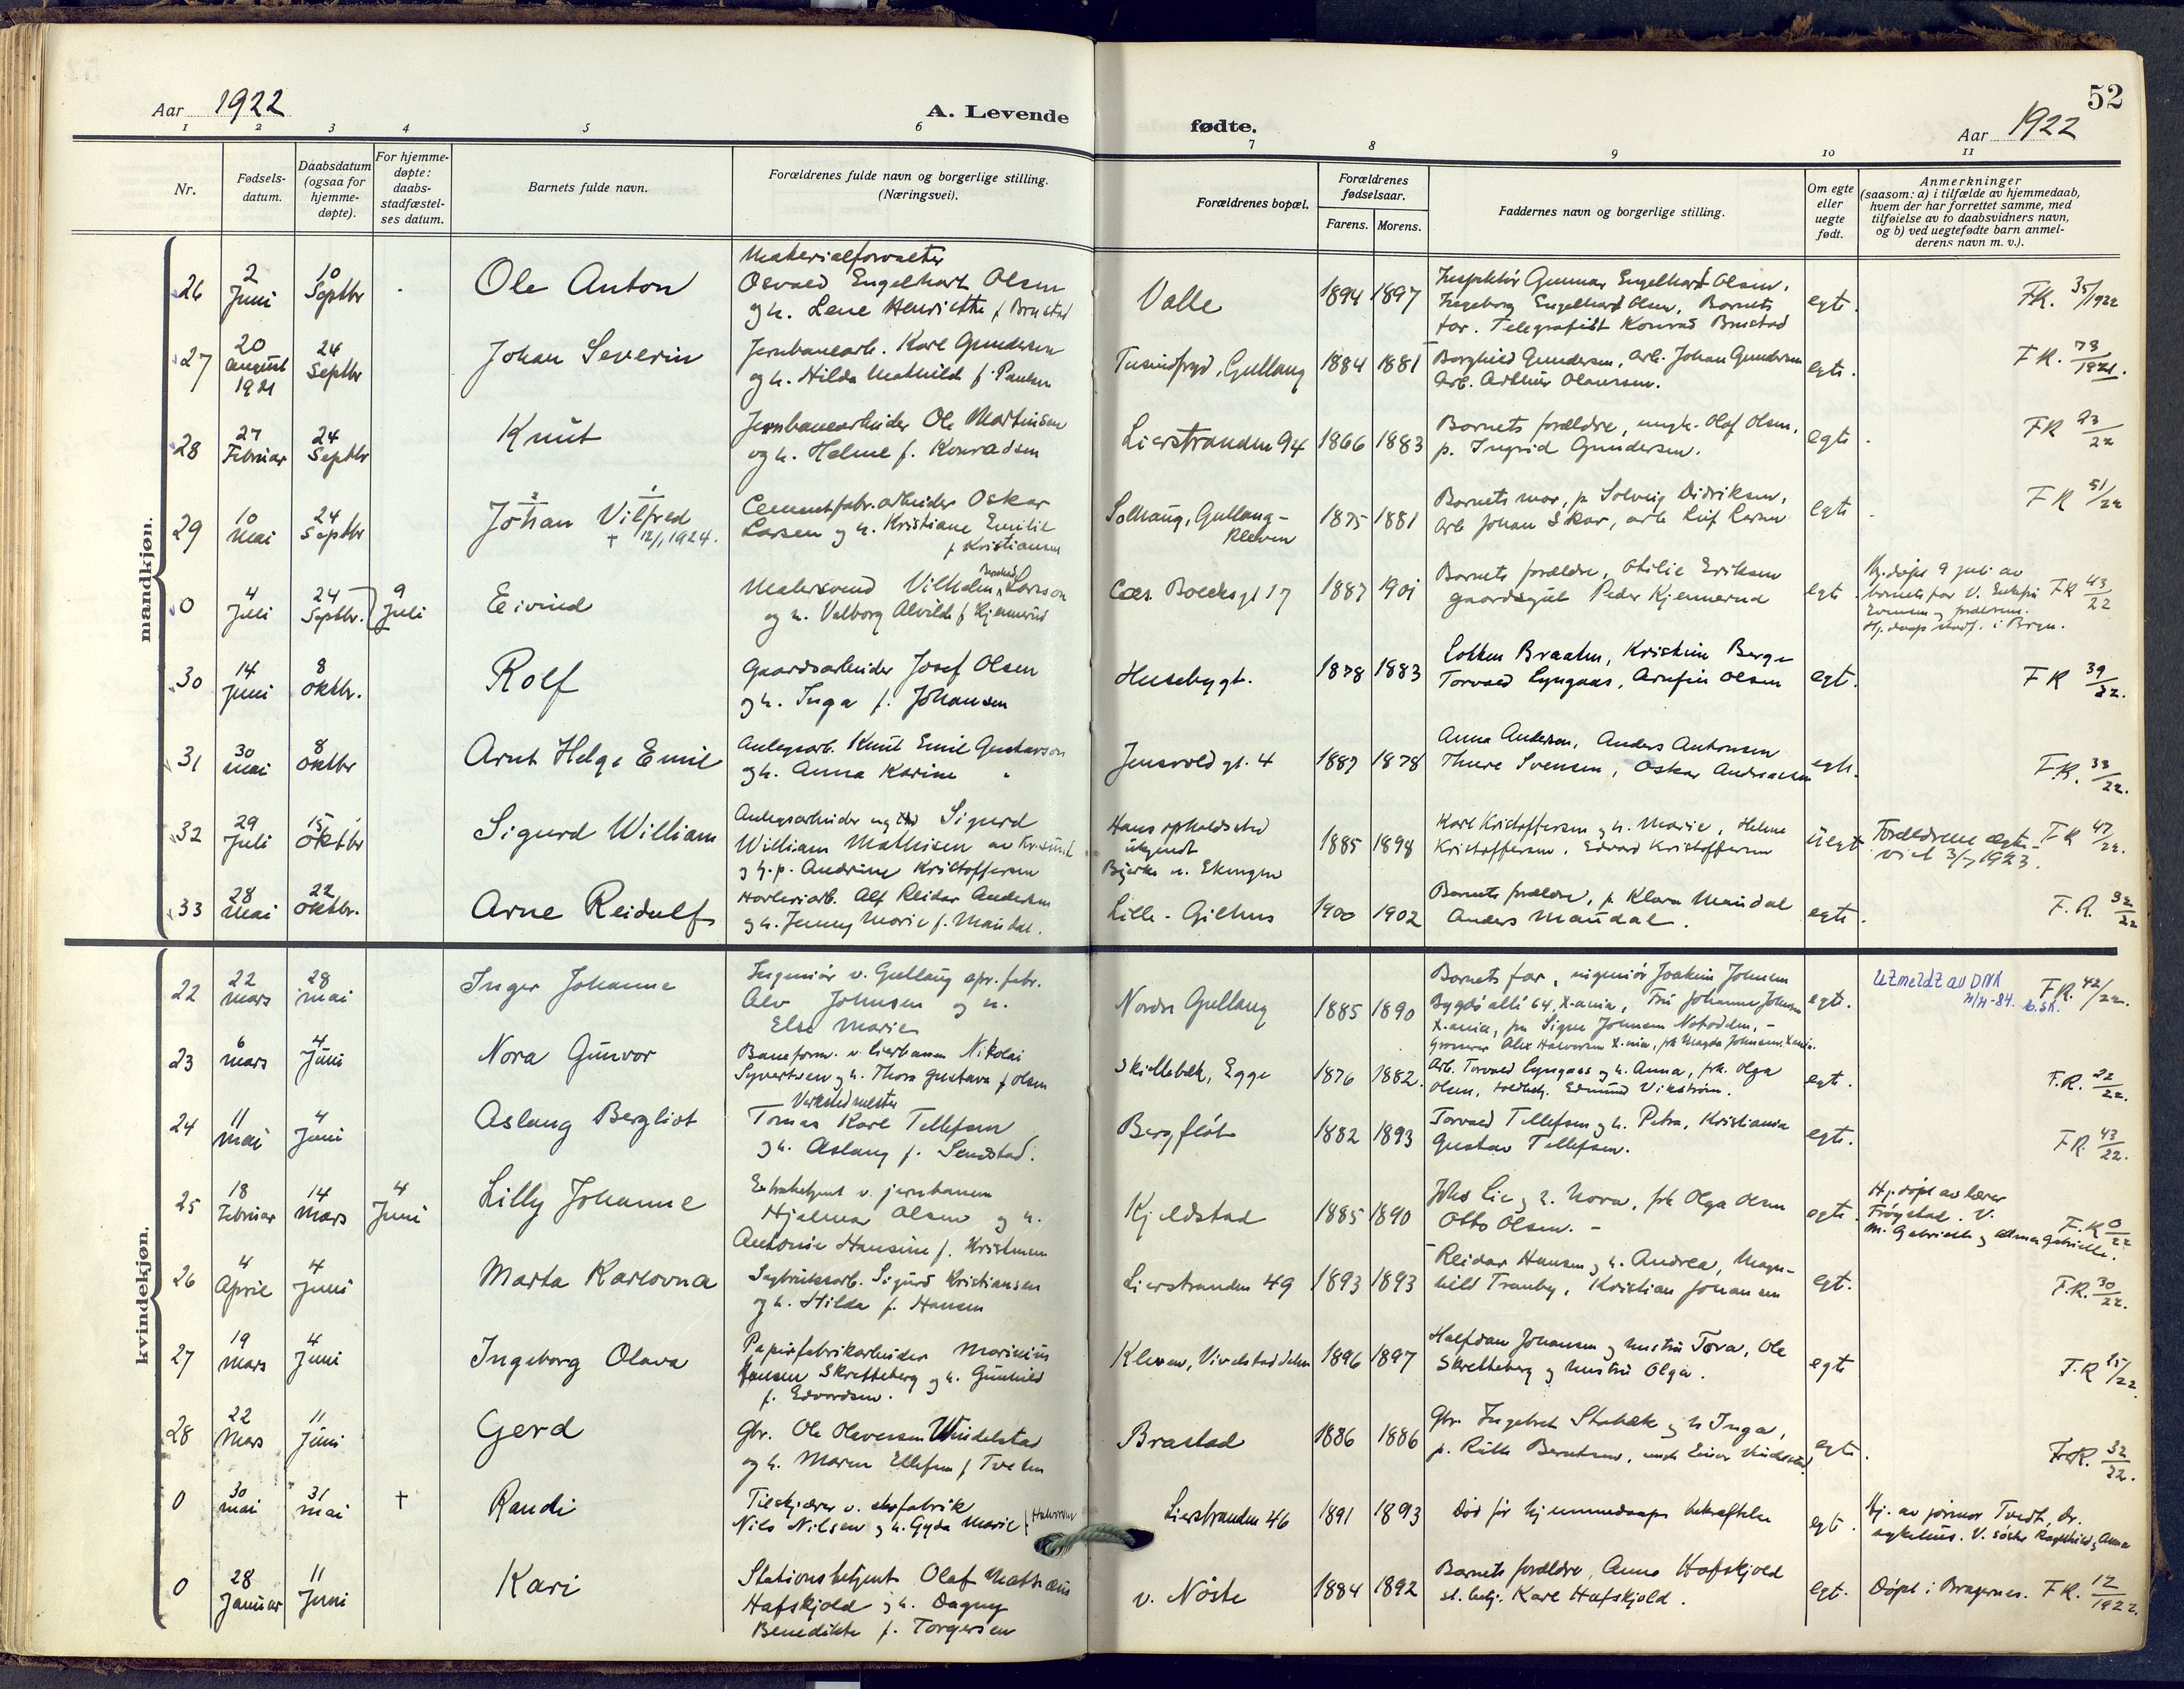 Aar 1922
A. Levende
fødte.
Aar 1922
52
1 2 3 4 5 6 7 8 9 10 11
Nr.
Fødsels-
datum.
Daabsdatum
(ogsaa for
hjemme-
døpte).
For hjemme-
døpte:
daabs-
stadfæstel-
ses datum.
Barnets fulde navn.
Forældrenes fulde navn og borgerlige stilling.
(Næringsvei).
Forældrenes bopæl.
Forældrenes
fødselsaar.
Farens. Morens.
Faddernes navn og borgerlige stilling.
Om egte
eller
uegte
født.
Anmerkninger
(saasom: a) i tilfælde av hjemmedaab,
hvem der har forrettet samme, med
tilføielse av to daabsvidners navn,
og b) ved uegtefødte barn anmel-
derens navn m. v.).
mandkjøn.
26 2 Juni 10 Septbr Ole Anton
Materialforvalter
Osvald Engelhart Olsen
og h. Lene Henriette f Brustad
Valle 1894 1897
Inspektør Gunnar Engelhart Olsen,
Ingeborg Engelhart Olsen, Barnets
far. Telegrafist Konrad Brustad
egte. FK. 35/1922
27 20 August 1921 24 Septbr Johan Severin
Jernbanearb. Karl Gundersen
og h. Hilda Mathilde f. Paulsen
Tusindfryd, Gullaug 1884 1881
Borghild Gundersen, arb. Johan Gundersen
Arb. Arthur Olaussen.
egte. FK. 73/1921.
28 27 Februar 24 Septbr Knut
Jernbanearbeider Ole Martinsen
og h. Helene f. Konradsen
Lierstranden 94 1866 1883
Barnets forældre, ungk. Olaf Olsen,
p. Ingrid Gundersen.
egte. FK 23/22
29 10 Mai 24 Septbr Johan Vilfred
† 12/1 1924.
Cementfabr.arbeider Oskar
Larsen og h. Kristiane Emilie
f Kristiansen
Solhaug, Gullaug-
kleven 1875 1881
Barnets mor, p Solveig Didriksen,
arb Johan Skar, arb Leif Larsen
egte. FK 51/22
0 4 Juli 24 Septbr. 9 Juli Eivind
Malersvend Vilhelm Larsson
og h. Valborg Alvilde f Kjennerud
1887 1901
Barnets forældre, Otilie Eriksen
gaardsgut Peder Kjennerud
egte
Hj.døpt 9 juli av
barnets far V.
FK 43/22
30 14 Juni 8 Oktbr. Rolf
Gaardsarbeider Josef Olsen
og h. Inga f. Johansen
Husebygt. 1878 1883
Lotten Braathe, Kristine Berge
Torvald Lyngaas, Arnfin Olsen
egte. FK 39/22.
31 30 Mai 8 Oktbr Arnt Helge Emil
Anlegsarb. Knut Emil Gustavson
og h. Anna Karine "
Jensvold gt. 4 1887 1878
Anna Andersen, Anders Antonsen
Thure Svensen, Oskar Andreassen
egte. F.K. 33/22.
32 29 Juli 15 Oktbr Sigurd William
Anlegsarbeider Sigurd
William Mathisen av Kr.sund
og p. Andrine Kristoffersen
Hans opholdssted
ukjendt
Bjerke n. Ekengen 1885 1898
Karl Kristoffersen og h. Marie, Helene
Kristoffersen, Edvard Kristoffersen
uegte
Forældrene egte-
viet 3/7 1923.
FK 47/22.
33 28 Mai 22 Oktbr. Arne Reidulf
Høvleriarb. Alf Reidar Andersen
og h. Jenny Marie f. Maudal.
Lille-Gilhus 1900 1902
Barnets forældre, p Klara Maudal
Anders Maudal.
egte. F.K. 32/22
kvindekjøn.
22 22 Mars 28 Mai Inger Johanne
Ingeniør v. Gullaug spr. fabr.
Alv Johnsen og h.
Else Marie
Nordre Gullaug 1885 1890
Barnets far, ingeniør Joakim Johnsen
Bygdø allé 64, X.ania, Fru Johanne Johnsen
X.ania, fru Signe Johnsen Notodden, -
Grosserer Alex Halvorsen X.nia, frk Magda Johnsen, X.ania.
egte.
Utmeldt av DNK
FK. 42/22.
23 6 Mars 4 Juni Nora Gunvor
Baneform. v. Lierbanen Nikolai
Syvertsen og h. Thora Gustava f Olsen
Skillebæk, Egge 1876 1882.
Arb. Torvald Lyngaas og h. Anna, frk. Olga
Olsen, Edmund Vikstrøm.
egte. F.K. 22/22.
24 11 Mai 4 Juni Aslaug Bergliot
Verkstedmester
Tomas Karl Tellefsen
og h. Aslaug f. Sendstad.
Bergfløt 1882 1893
Torvald Tellefsen og h. Petra, Kristiania
Gustav Tellefsen.
egte. FK. 43/22.
25 18 Februar 14 Mars 4 Juni Lilly Johanne
Extrabetjent v. jernbanen
Hjalmar Olsen og h.
Antonie Hansine f. Kristensen
Kjeldstad 1885 1890
Johs Lie og h. Nora, frk Olga Olsen
Otto Olsen. -
egte.
Hj.døpt av lærer
Frøystad. V.
F.K 0/22
26 4 April 4 Juni Marta Karlovna
Sagbruksarb. Sigurd Kristiansen
og h. Hilda f. Hansen
Lierstranden 49 1893 1893
Reidar Hansen og h. Andrea, Magn-
hild Tranby, Kristian Johansen
egt. F.K. 30/22.
27 19 Mars 4 Juni Ingeborg Olava
Papirfabrikarbeider Marinius
Jensen Skretteberg og h. Gunhild
f. Edvardsen.
Kleven, Vivelstaddalen 1896 1897
Halfdan Johansen og hustru Tora, Ole
Skretteberg og hustru Olga.
egte F.K 15/22
28 22 Mars 11 Juni Gerd
Gbr. Ole Olavesen Windelstad
og h. Maren Ellefsen f Tveten
Brastad 1886 1886
Gbr. Ingebret Stabæk og h Inga,
p. Ruth Berntsen,
egte. F.K. 32/22.
0 30 Mai 31 Mai † Randi
Tilskjærer v. skofabrik
Nils Nilsen og h. Gyda Marie f Halvorsen
Lierstranden 46 1891 1893
Død før hjemmedaaps bekræftelse
egt.
Hj. av jormor Tvedt, Dr.
sykehus. V. søstr Ragnhild og Anna
0 28 Januar 11 Juni Kari
Stationsbetjent Olaf Mathæus
Hafskjold og h. Dagny
Benedikte f. Torgersen
v. Nøste 1884 1892
Barnets forældre, Anna Hafskjold
st.betj. Karl Hafskjold.
egt. Døpt i Bragernes. FK. 12/1922.